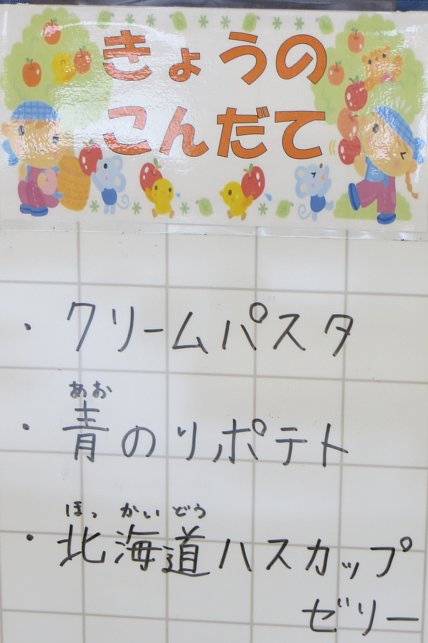 きょうの
こんだて
・クリームパスタ
あお
・青のりポテト
ほっかいどう
・北海道ハスカップ
ゼリー